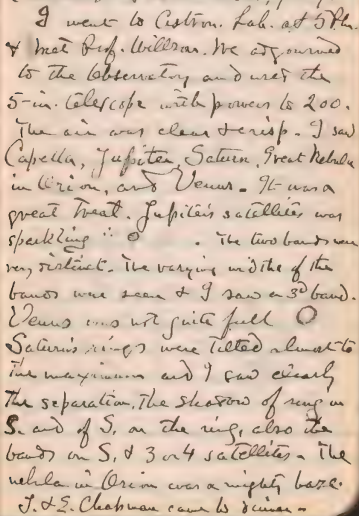 I went to Astron. Lab. at 5 P.M.
& met Prof. Willson. We adjourned
to the Observatory and used the
5-in. telescope with powers to 200.
The air was clear & crisp. I saw
Capella, Jupiter, Saturn, Great Nebula
in Orion, and Venus. It was a
great treat. Jupiter's satellites was
sparkling . The two bands were
very distinct. The varying widths of the
bands were seen & I saw a 3d band.
Venus was not quite full
Saturn's rings were tilted almost to
the maximum and I saw clearly
the separation, the shadow of ring on
S. and of S. on the ring, also the
bands on S. & 3 or 4 satellites. The
nebula in Orion was a mighty haze.
J. & E. Chapman came to dinner.